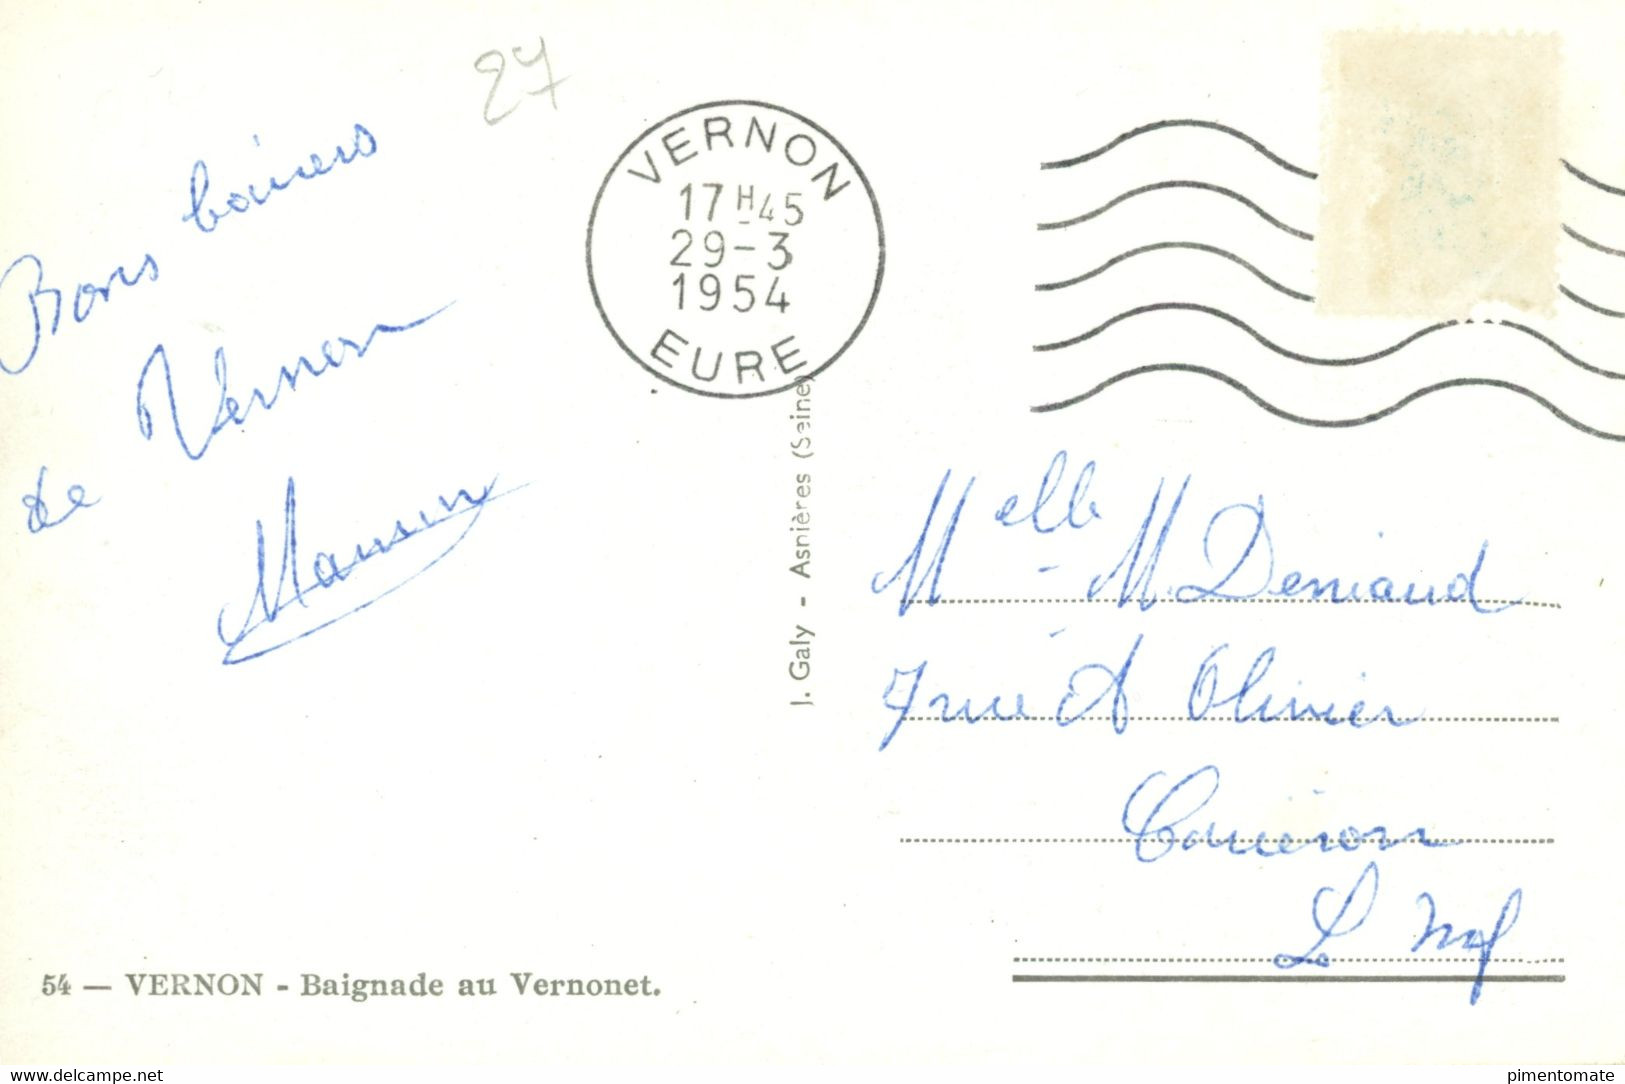 27
Bons baisers
de Vernon
VERNON
17 H 45
29-3
1954
EURE
J. Galy - Asnières (Seine)
Melle M. Deniaud
7 rue A Olivier
Couëron
L Inf
54 — VERNON - Baignade au Vernonet.
www.delcampe.net
pimentomate